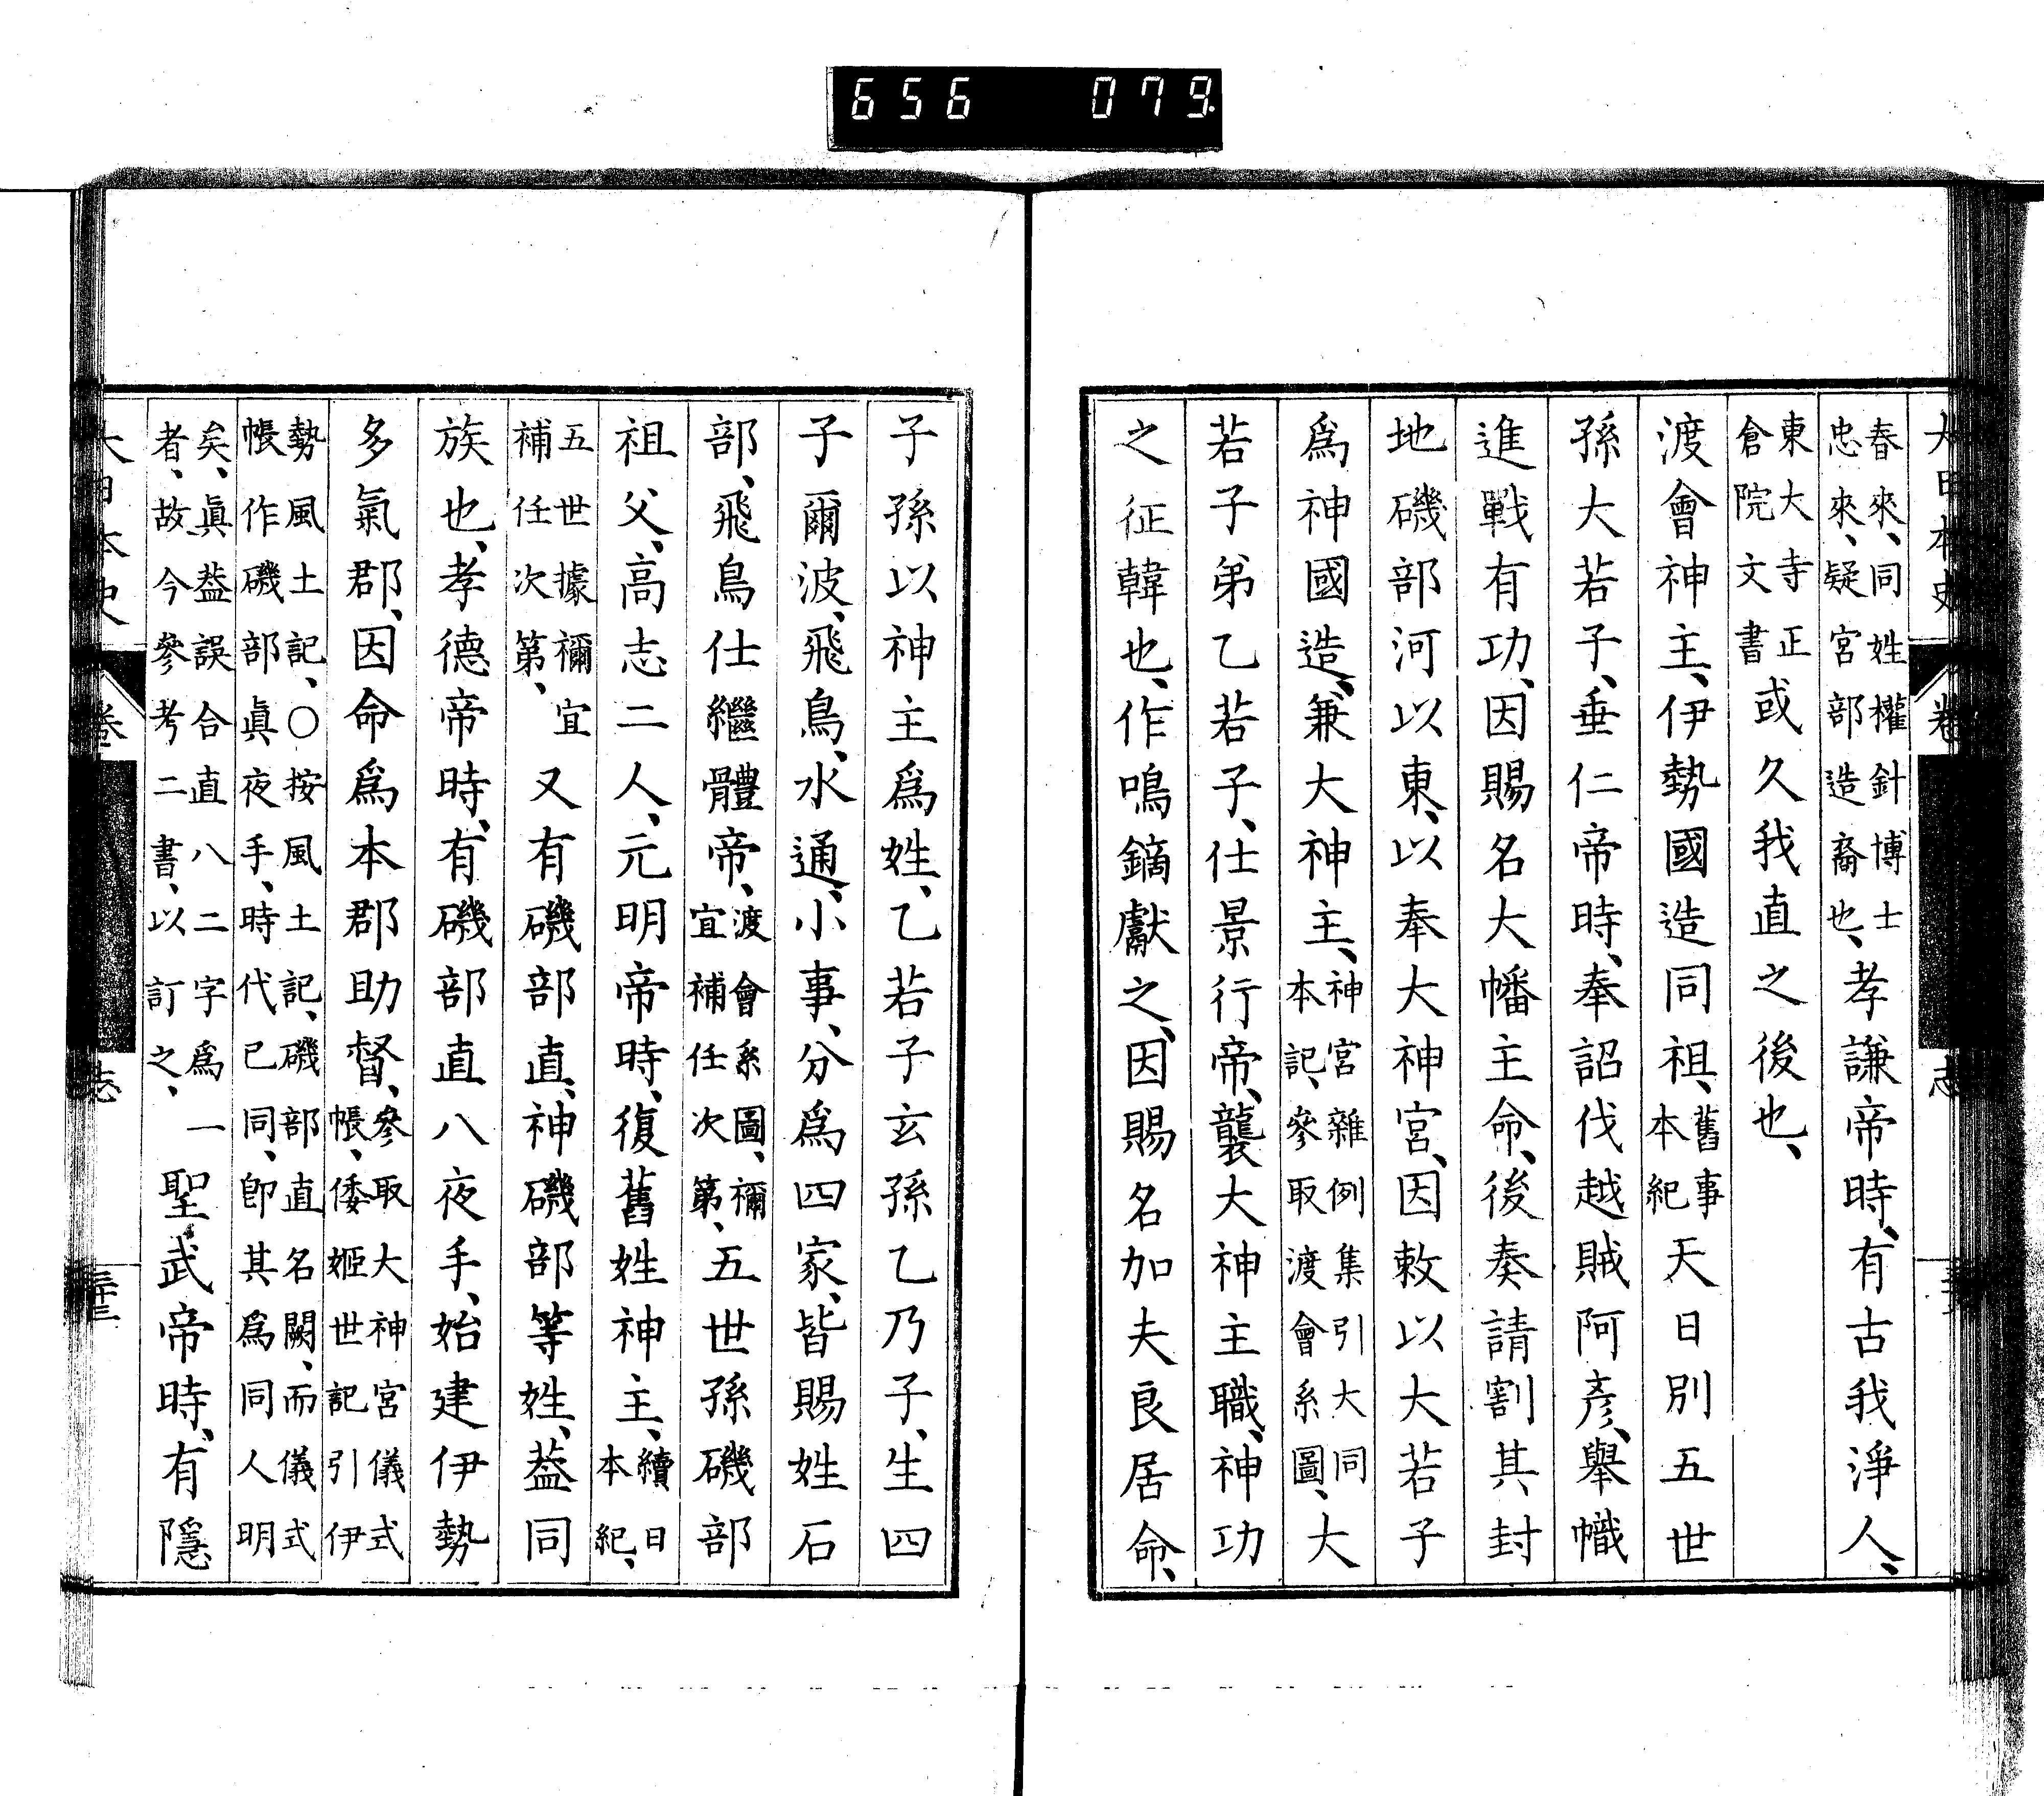 656 079
大日本史 卷 志
春來、同姓權針博士
忠來、疑宮部造裔也、孝謙帝時、有古我淨人、
東大寺正
倉院文書或久我直之後也、
渡會神主、伊勢國造同祖、舊事
本紀天日別五世
孫大若子、垂仁帝時、奉詔伐越賊阿彥、舉幟
進戰有功、因賜名大幡主命、後奏請割其封
地磯部河以東、以奉大神宮、因敕以大若子
爲神國造、兼大神主、神宮雜例集引大同
本記、參取渡會系圖、大
若子弟乙若子、仕景行帝、襲大神主職、神功
之征韓也、作鳴鏑獻之、因賜名加夫良居命、
子孫以神主爲姓、乙若子玄孫乙乃子、生四
子爾波、飛鳥、水通、小事、分爲四家、皆賜姓石
部、飛鳥仕繼體帝、渡會系圖、禰
宜補任次第、五世孫磯部
祖父、高志二人、元明帝時、復舊姓神主、續日
本紀、
五世據禰宜
補任次第、又有磯部直、神磯部等姓、葢同
族也、孝德帝時、有磯部直八夜手、始建伊勢
多氣郡、因命爲本郡助督、參取大神宮儀式
帳、倭姬世記引伊
勢風土記、○按風土記、磯部直名闕、而儀式
帳作磯部眞夜手、時代已同、卽其爲同人明
矣、眞葢誤合直八二字爲一
者、故今參考二書、以訂之、聖武帝時、有隱
大日本史 卷 志